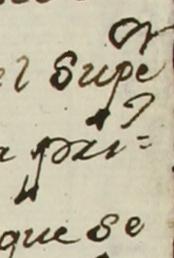 el Supe or
a pri=
que se